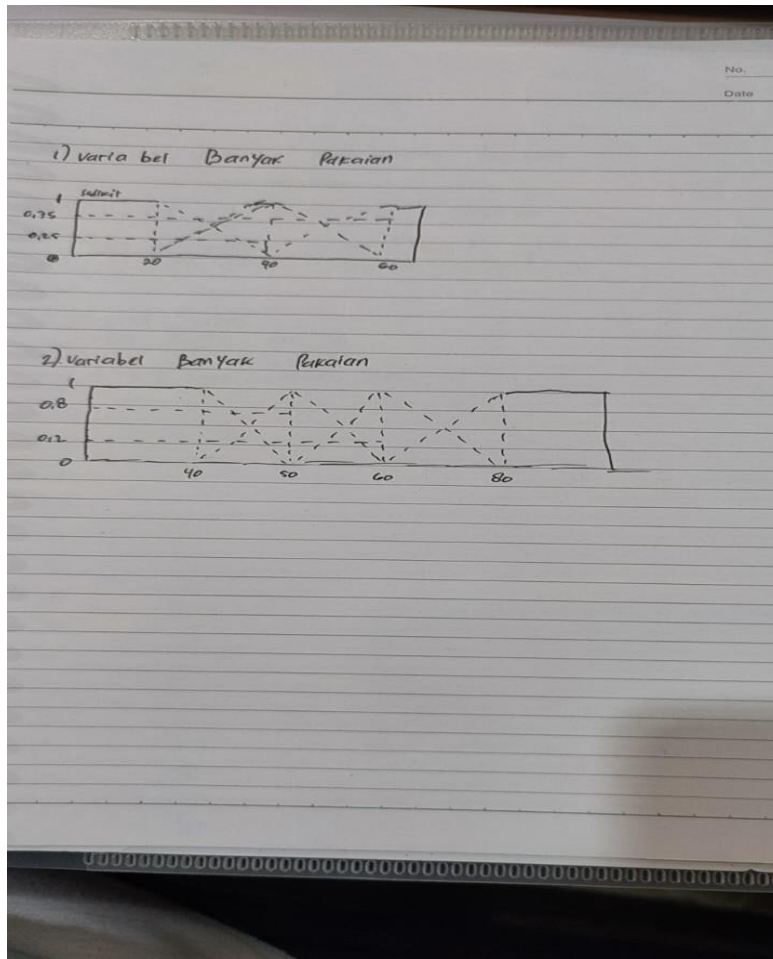 No.
Date
1) Varia bel Banyak Pakaian
1 sedikit
0,75
0,25
0 20 40 60
2) Variabel Banyak Pakaian
1
0,8
0,2
0
40 50 60 80